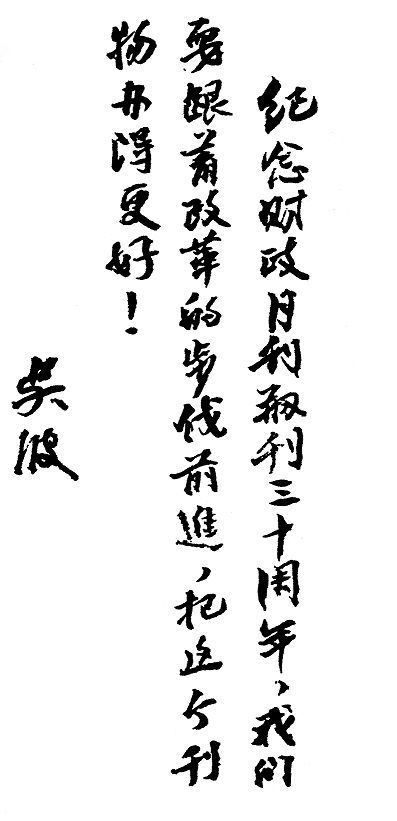 纪念财政月刊刱刊三十周年，我们
要跟着改革的步伐前進，把这个刊
物办得更好！
吴波